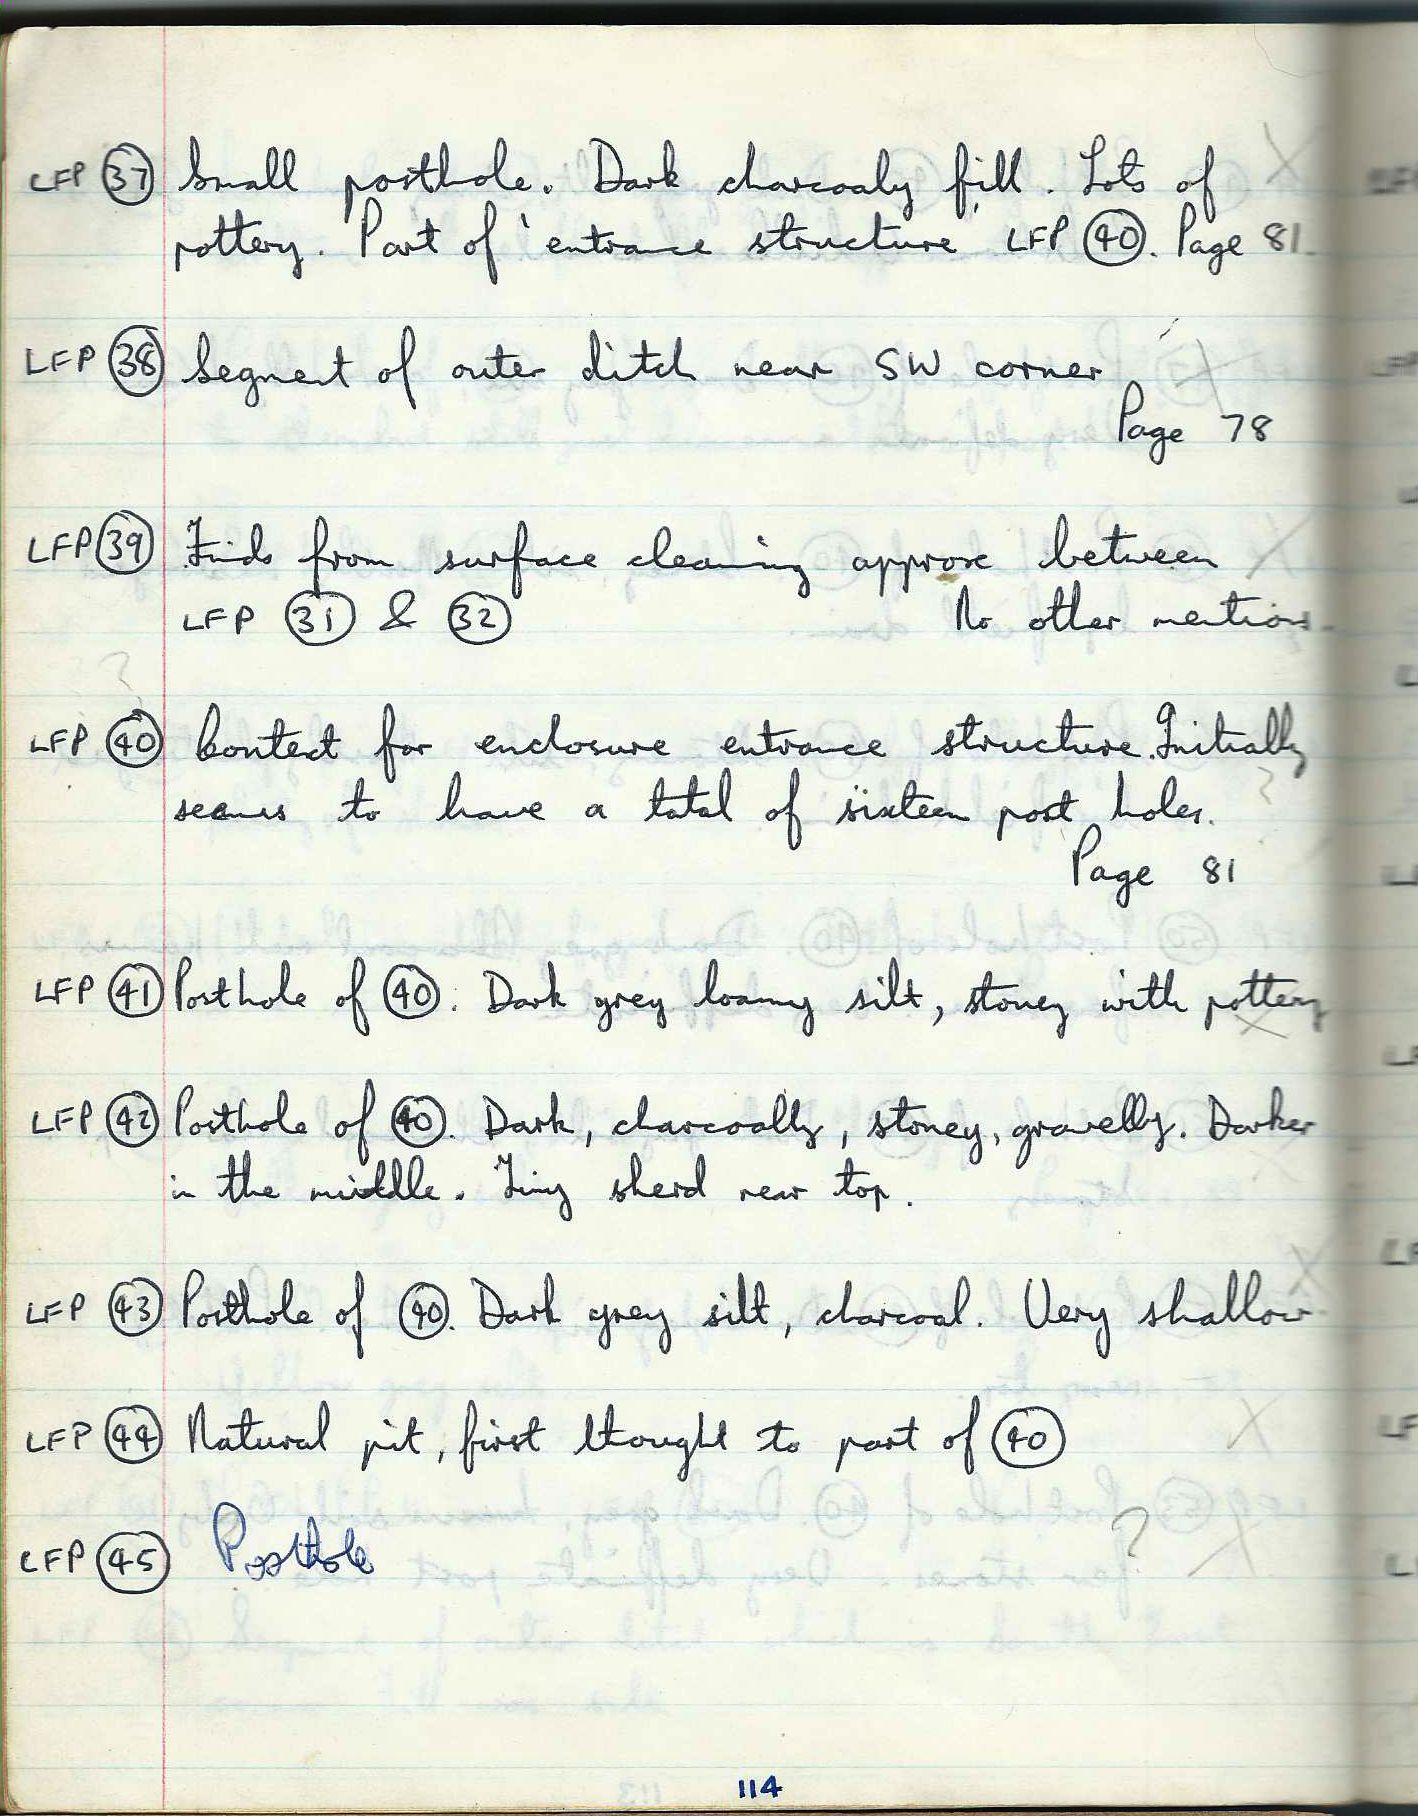 LFP 37 Small posthole. Dark charcoaly fill. Lots of
pottery. Part of 'entrance structure' LFP 40. Page 81.
LFP 38 Segment of outer ditch near SW corner
Page 78
LFP 39 Finds from surface cleaning approx between
LFP 31 & 32 No other mention.
LFP 40 Context for enclosure entrance structure. Initially
seems to have a total of sixteen post holes.
Page 81
LFP 41 Posthole of 40. Dark grey loamy silt, stoney with pottery
LFP 42 Posthole of 40. Dark, charcoally, stoney, gravelly. Darker
in the middle. Tiny sherd near top.
LFP 43 Posthole of 40. Dark grey silt, charcoal. Very shallow
LFP 44 Natural pit, first thought to part of 40
LFP 45 Posthole ?
114